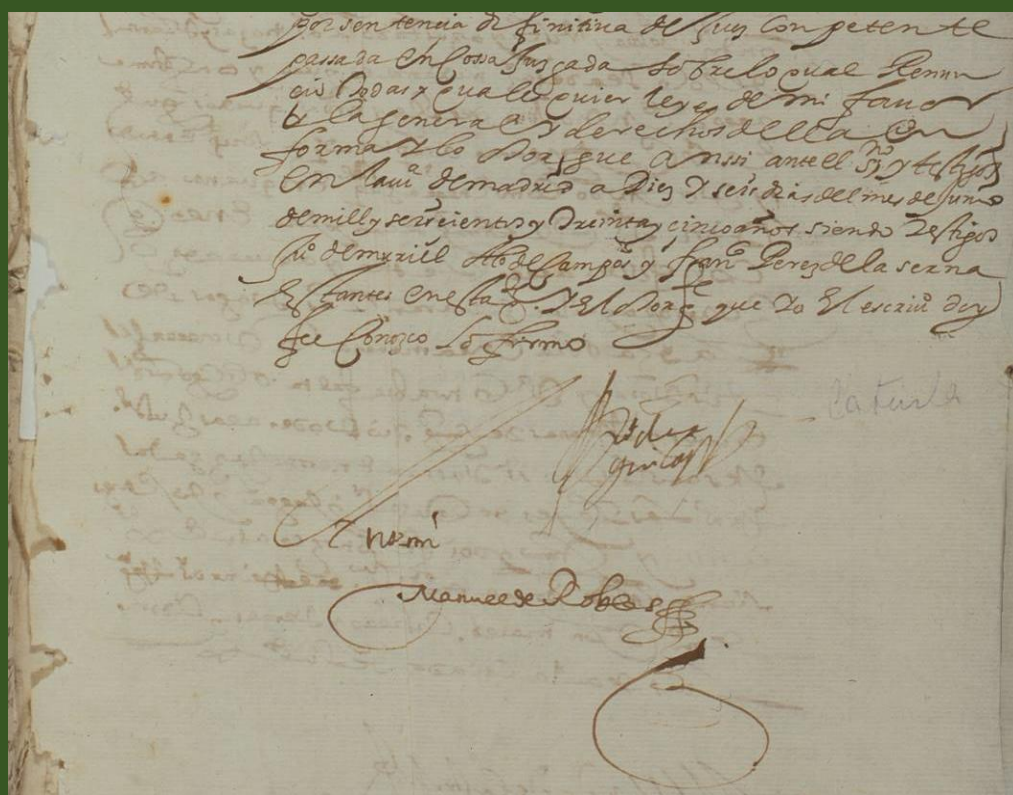 por sentencia difinitiva de juez conpetente
passada en cossa juzgada sobre lo qual Renun
cio Todas y qualesquier leyes de mi favor
y la general y derechos della en
forma y lo otorgue anssi ante el ssno y testigos
en la uª de madrid a Diez y seis dias del mes de Junio
de mill y seiscientos y Treinta y cinco años siendo Testigos
de Campos y franco Perez de la serna
Estantes en esta y el otorgte que yo El escriuº doy
fee Conozco lo firmo
Ante mi
Manuel de Robles